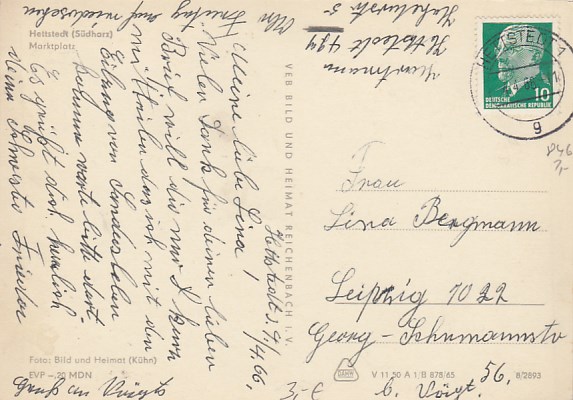 Hettstedt (Südharz)
Marktplatz
Hettstedt d. 9/4.66,
Meine liebe Lina!
Vielen Dank für deinen lieben
Brief will dir nur kurz
mitteilen das ich mit den
Eilzug von
komme warte bitte dort
Es grüßt dich herzlich
deine Schwester Frieda
Freitag auf wiedersehen
Hettstedt 494
VEB BILD UND HEIMAT REICHENBACH I. V.
HETTSTEDT 1
g
10
DEUTSCHE
DEMOKRATISCHE REPUBLIK
Frau
Lina Bergmann
Leipzig 7022
Georg-Schumannstr
56,
b. Voigt.
Foto: Bild und Heimat (Kühn)
EVP -,20 MDN
Gruß an Voigts
3,- €
V 11 50 A 1 B 878/65
8/2893
3,-